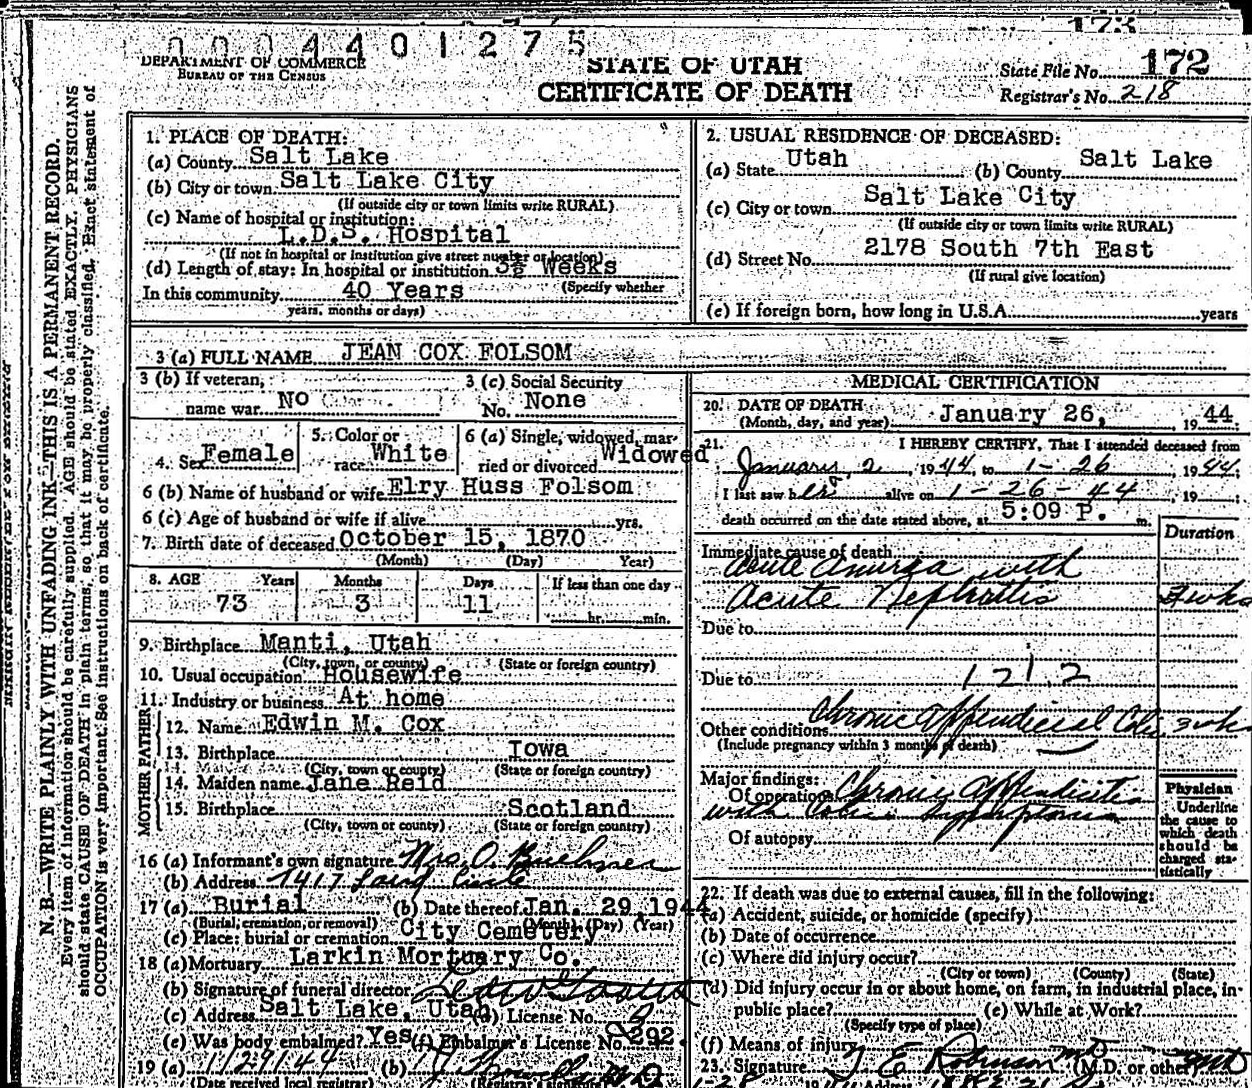 173
0 0 0 4 4 0 1 2 7 5
DEPARTMENT OF COMMERCE
BUREAU OF THE CENSUS
STATE OF UTAH
CERTIFICATE OF DEATH
State File No. 172
Registrar's No. 218
N. B.—WRITE PLAINLY WITH UNFADING INK—THIS IS A PERMANENT RECORD.
Every item of information should be carefully supplied. AGE should be stated EXACTLY. PHYSICIANS
should state CAUSE OF DEATH in plain terms, so that it may be properly classified. Exact statement of
OCCUPATION is very important. See instructions on back of certificate.
1. PLACE OF DEATH:
(a) County Salt Lake
(b) City or town Salt Lake City
(If outside city or town limits write RURAL)
(c) Name of hospital or institution:
L.D.S. Hospital
(If not in hospital or institution give street number or location)
(d) Length of stay: In hospital or institution 3½ Weeks
(Specify whether
In this community 40 Years
years, months or days)
2. USUAL RESIDENCE OF DECEASED:
(a) State Utah (b) County Salt Lake
(c) City or town Salt Lake City
(If outside city or town limits write RURAL)
(d) Street No. 2178 South 7th East
(If rural give location)
(e) If foreign born, how long in U.S.A. years
3 (a) FULL NAME JEAN COX FOLSOM
3 (b) If veteran,
name war No
3 (c) Social Security
No. None
4. Sex Female
5. Color or
race White
6 (a) Single, widowed, mar-
ried or divorced Widowed
6 (b) Name of husband or wife Elry Huss Folsom
6 (c) Age of husband or wife if alive yrs.
7. Birth date of deceased October 15, 1870
(Month) (Day) Year)
8. AGE Years Months Days If less than one day
73 3 11 hr. min.
9. Birthplace Manti, Utah
(City, town, or county) (State or foreign country)
10. Usual occupation Housewife
11. Industry or business At home
FATHER
12. Name Edwin M. Cox
13. Birthplace Iowa
(City, town or county) (State or foreign country)
MOTHER
14. Maiden name Jane Reid
15. Birthplace Scotland
(City, town or county) (State or foreign country)
16 (a) Informant's own signature Mrs. O. Buehner
(b) Address 1417 Laird Circle
17 (a) Burial (b) Date thereof Jan. 29, 1944
(Burial, cremation, or removal) (Month) (Day) (Year)
(c) Place: burial or cremation City Cemetery
18 (a) Mortuary Larkin Mortuary Co.
(b) Signature of funeral director
(c) Address Salt Lake, Utah (d) License No.
(e) Was body embalmed? Yes (f) Embalmer's License No. 292.
19 (a) 1/29/44 (b)
(Date received local registrar) (Registrar's signature)
MEDICAL CERTIFICATION
20. DATE OF DEATH
(Month, day, and year) January 26, 1944
21. I HEREBY CERTIFY, That I attended deceased from
January 2, 1944, to 1-26 1944.
I last saw her alive on 1-26-44, 19
death occurred on the date stated above, at 5:09 P. m.
Duration
Immediate cause of death
Acute Anuria with
Acute Nephritis 3 wks
Due to
Due to 121.2
Other conditions Chronic appendiceal Colic 3 wks
(Include pregnancy within 3 months of death)
Major findings:
Of operations Chronic Appendicitis
with Colic Symptoms
Of autopsy
Physician
Underline
the cause to
which death
should be
charged sta-
tistically
22. If death was due to external causes, fill in the following:
(a) Accident, suicide, or homicide (specify)
(b) Date of occurrence
(c) Where did injury occur?
(City or town) (County) (State)
(d) Did injury occur in or about home, on farm, in industrial place, in-
public place? (e) While at Work?
(Specify type of place)
(f) Means of injury
23. Signature (M.D. or other) MD